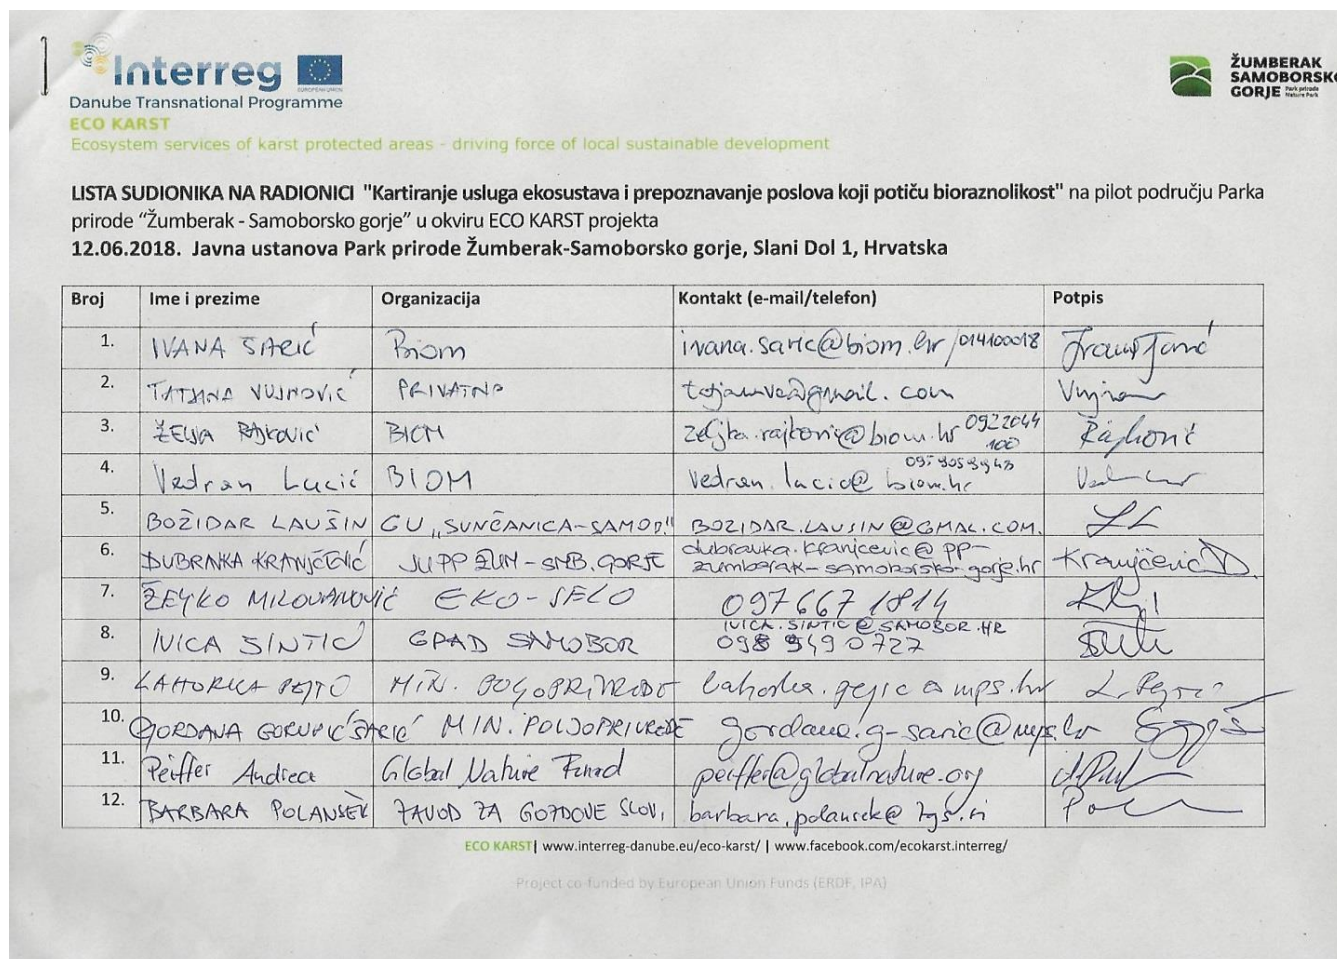 Interreg
EUROPEAN UNION
Danube Transnational Programme
ECO KARST
Ecosystem services of karst protected areas - driving force of local sustainable development
ŽUMBERAK
SAMOBORSKO
GORJE Park prirode Nature Park
LISTA SUDIONIKA NA RADIONICI "Kartiranje usluga ekosustava i prepoznavanje poslova koji potiču bioraznolikost" na pilot području Parka
prirode “Žumberak - Samoborsko gorje” u okviru ECO KARST projekta
12.06.2018. Javna ustanova Park prirode Žumberak-Samoborsko gorje, Slani Dol 1, Hrvatska
Broj Ime i prezime Organizacija Kontakt (e-mail/telefon) Potpis
1. IVANA ŠARIĆ Biom ivana.saric@biom.hr /014100018
2. TATJANA VUJNOVIĆ PRIVATNO
3. ŽELJKA RAJKOVIĆ BIOM zeljka.rajkovic@biom.hr 0922044 100 Rajković
4. Vedran Lucić BIOM vedran.lucic@biom.hr
5. BOŽIDAR LAUŠIN GU „SUNČANICA-SAMOB." BOZIDAR.LAUSIN@GMAL.COM.
6. DUBRAVKA KRANJČEVIĆ JU PP ŽUM-SMB.GORJE dubravka.kranjcevic@pp-
zumberak-samoborsko-gorje.hr Kranjčević D.
7. ŽELJKO MILOVANOVIĆ EKO-SELO 097 667 1814
8. IVICA SINTIĆ GRAD SAMOBOR IVICA.SINTIC@SAMOBOR.HR
098 9490727
9. LAHORKA MIN. POLJOPRIVREDE
10. GORDANA GORUPIĆ ŠARIĆ MIN. POLJOPRIVREDE gordana.g-saric@mps.hr
11. Peiffer Andrea Global Nature Fund peiffer@globalnature.org
12. BARBARA POLANŠEK ZAVOD ZA GOZDOVE SLOV. barbara.polansek@zgs.si
ECO KARST| www.interreg-danube.eu/eco-karst/ | www.facebook.com/ecokarst.interreg/
Project co-funded by European Union Funds (ERDF, IPA)